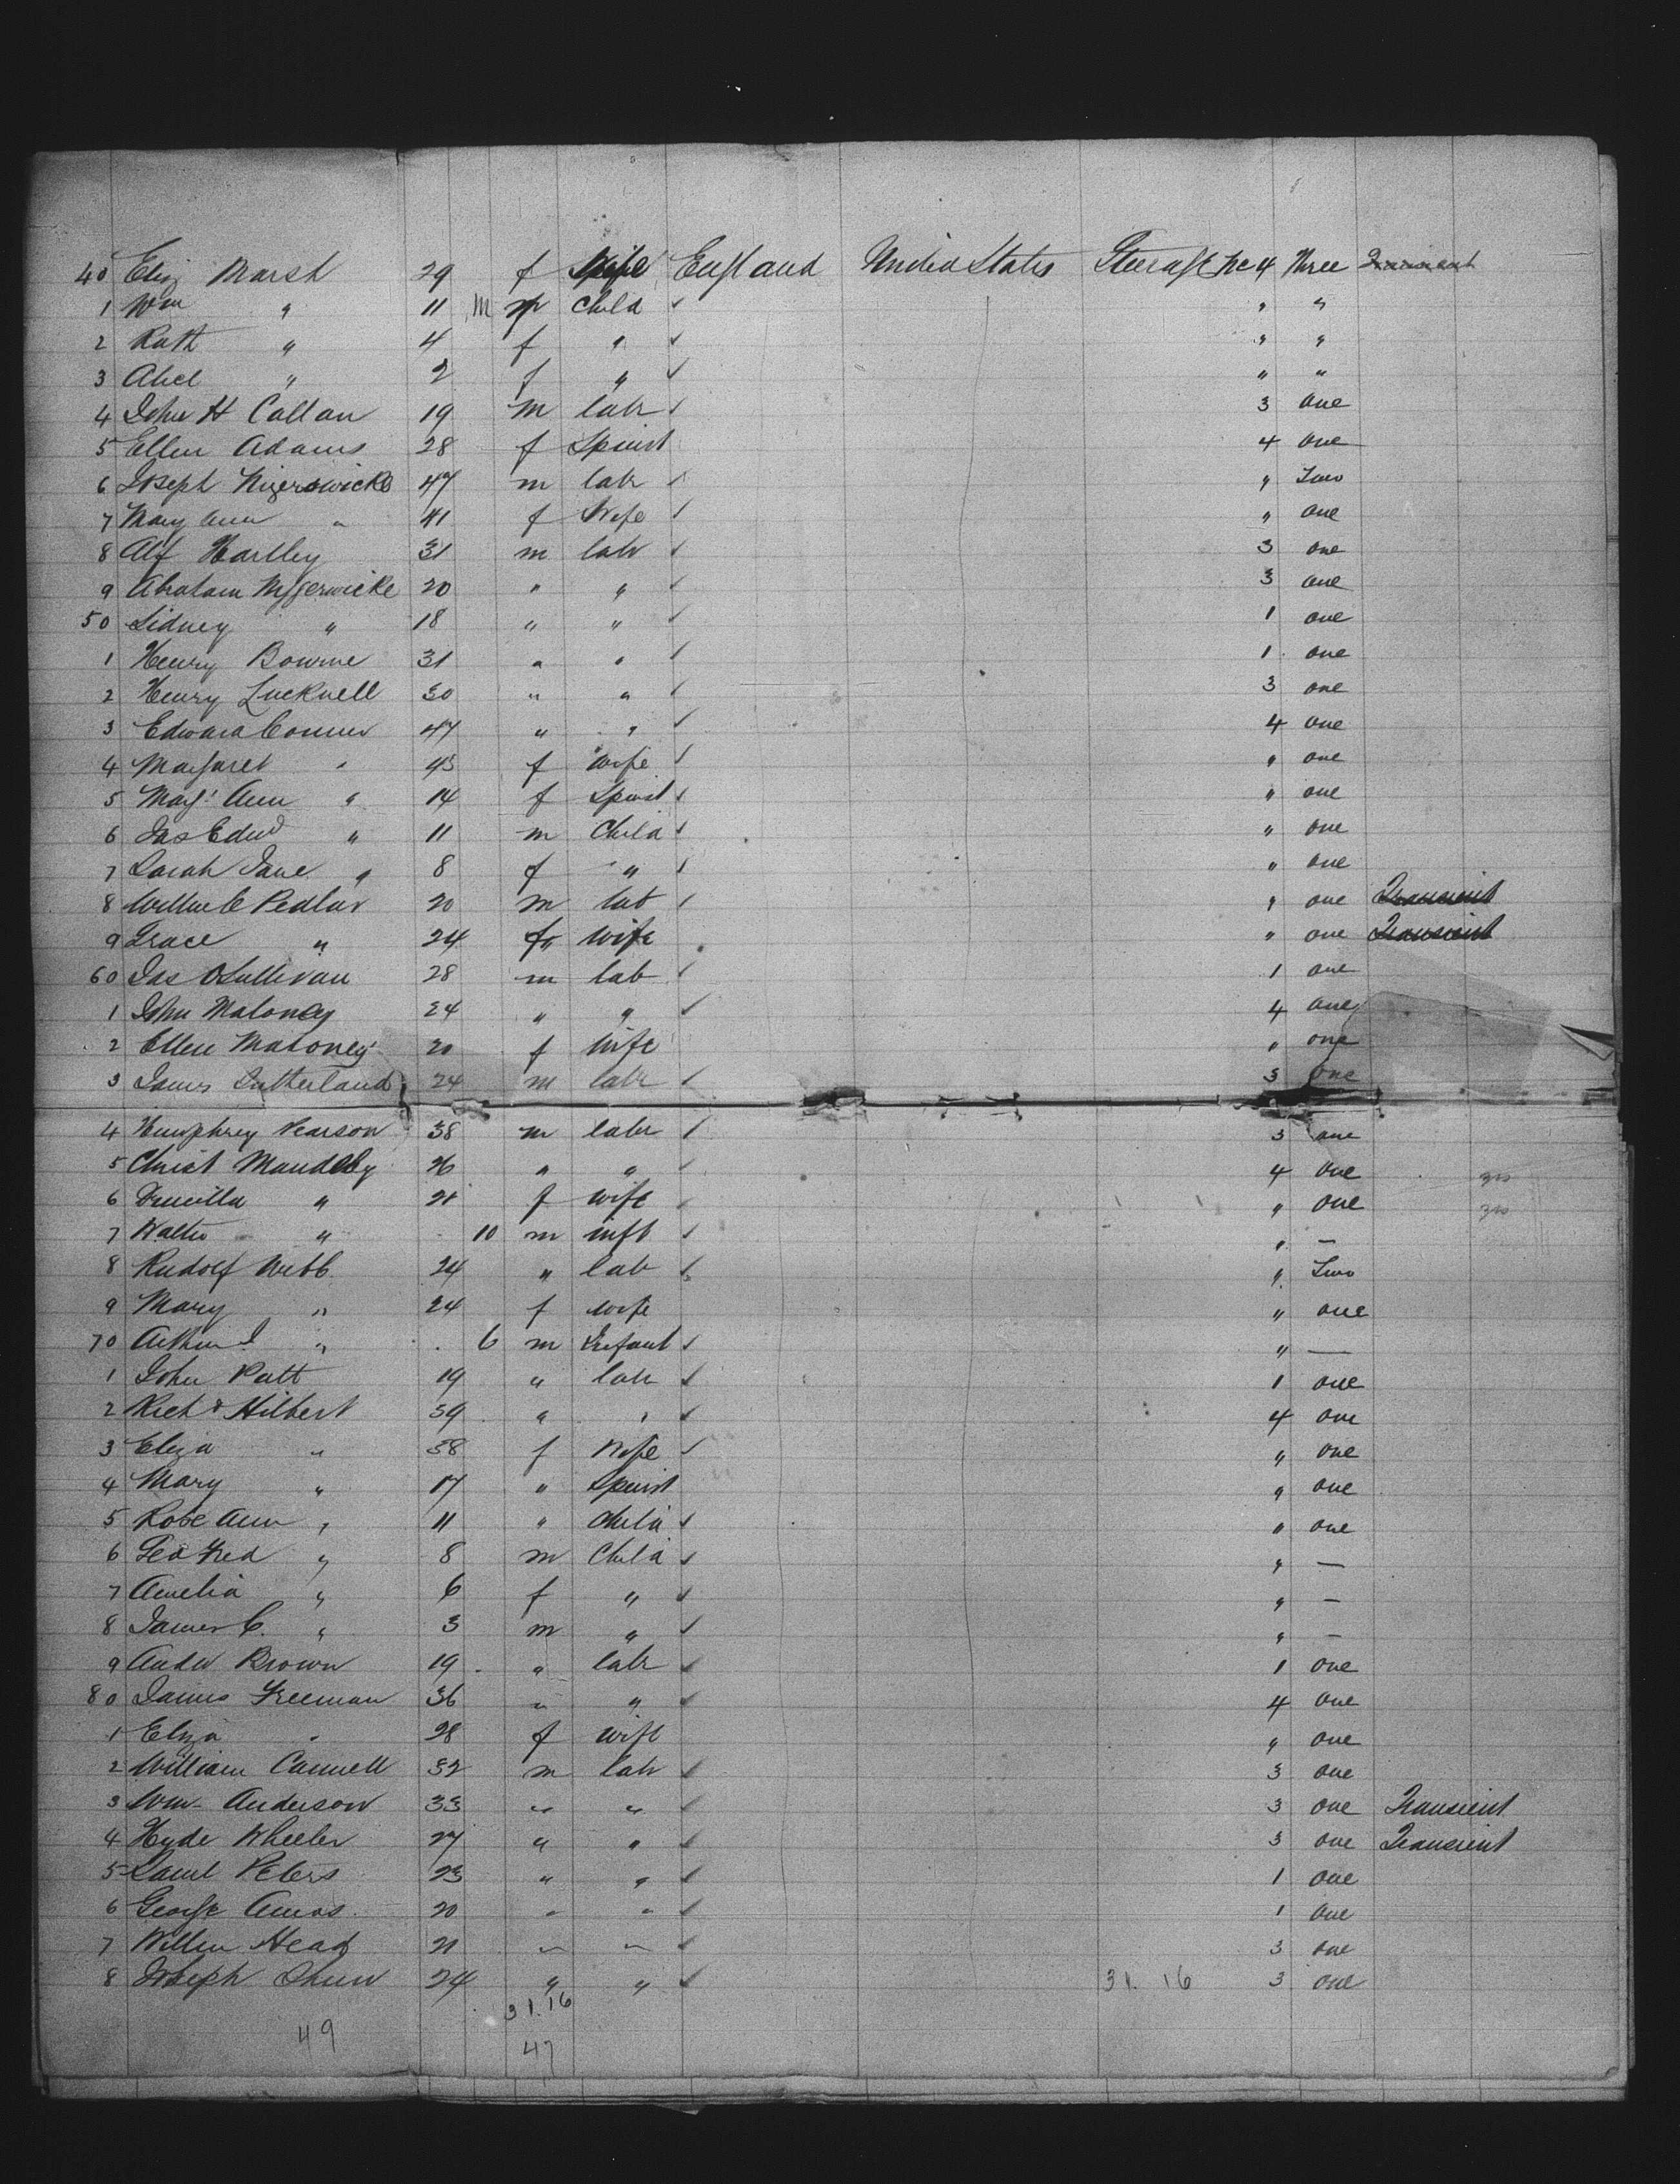 40 Eliz Marsh 29 f Wife England United States Steerage No 4 Three Transient
1 Wm " 11 m m Child ✓ " "
2 Ruth " 4 f " ✓ " "
3 Abel " 2 f " ✓ " "
4 John H Callan 19 m labr ✓ 3 one
5 Ellen Adams 28 f Spinst 4 one
6 Joseph 47 m labr ✓ " Two
7 Mary Ann " 41 f Wife ✓ " one
8 Alf Hartley 31 m labr ✓ 3 one
9 Abraham 20 " " ✓ 3 one
50 Sidney " 18 " " ✓ 1 one
1 Henry Bourne 31 " " ✓ 1 one
2 Henry Lucknell 30 " " ✓ 3 one
3 Edward Conner 47 " " ✓ 4 one
4 Margaret " 43 f Wife ✓ " one
5 Margt Ann " 14 f Spinst ✓ " one
6 Jas Edwd " 11 m Child ✓ " one
7 Sarah Jane " 8 f " ✓ " one
8 Pedlar 20 m lab ✓ " one Transient
9 Grace " 24 f " wife " one Transient
60 Jas OSullivan 28 m lab ✓ 1 one
1 John Maloney 24 " " ✓ 4 one
2 Ellen Mahoney 20 f wife " one
3 James Sutherland 24 m labr ✓ 3 one
4 Humphrey Pearson 38 m labr ✓ 3 one
5 Christ 26 " " ✓ 4 one
6 Drucilla " 21 f wife ✓ " one
7 Walter " 10 m inft ✓ " —
8 Rudolf Webb 24 " lab ✓ " Two
9 Mary " 24 f wife " one
70 Arthur J " 6 m Infant ✓ " —
1 John Patt 19 " labr ✓ 1 one
2 Richd Hilbert 39 " " ✓ 4 one
3 Eliza " 38 f Wife ✓ " one
4 Mary " 17 " Spinst " one
5 Rose Ann " 11 " Child ✓ " one
6 Geo Fred " 8 m Child ✓ " —
7 Amelia " 6 f " ✓ " —
8 James C. " 3 m " ✓ " —
9 Andw Brown 19 " labr ✓ 1 one
80 James Freeman 36 " " ✓ 4 one
1 Eliza " 28 f wife " one
2 William Cannell 32 m labr ✓ 3 one
3 Wm Anderson 33 " " ✓ 3 one Transient
4 Hyde Wheeler 27 " " ✓ 3 one Transient
5 Saml Peters 23 " " ✓ 1 one
6 George Amos 20 " " ✓ 1 one
7 Willm Head 21 " " ✓ 3 one
8 Joseph 24 " " ✓ 31. 16 3 one
31.16
49 47